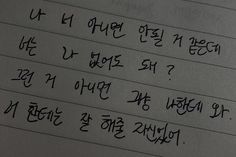 나 너 아니면 안될 거 같은데
너는 나 없어도 돼?
그런 거 아니면 그냥 나한테 와.
너한테는 잘 해줄 자신있어.